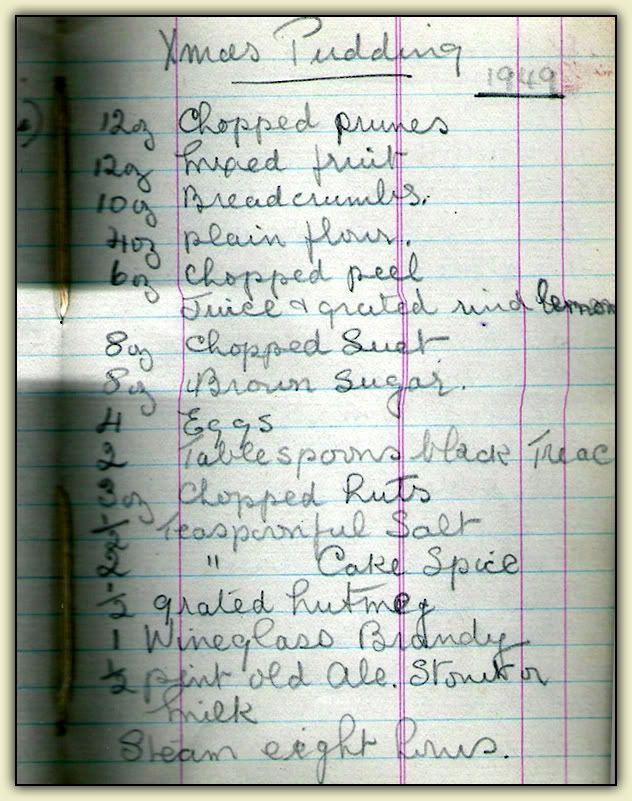 Xmas Pudding
1949
12oz Chopped prunes
12oz mixed fruit
10oz Breadcrumbs.
4oz plain flour.
6oz chopped peel
Juice & grated rind lemon
8oz Chopped Suet
8oz Brown Sugar.
4 Eggs
2 Tablespoons black Treac
oz Chopped nuts
Teaspoonful Salt
" Cake Spice
½ grated nutmeg
1 Wineglass Brandy
½ pint old Ale. Stout or
milk
Steam eight hours.